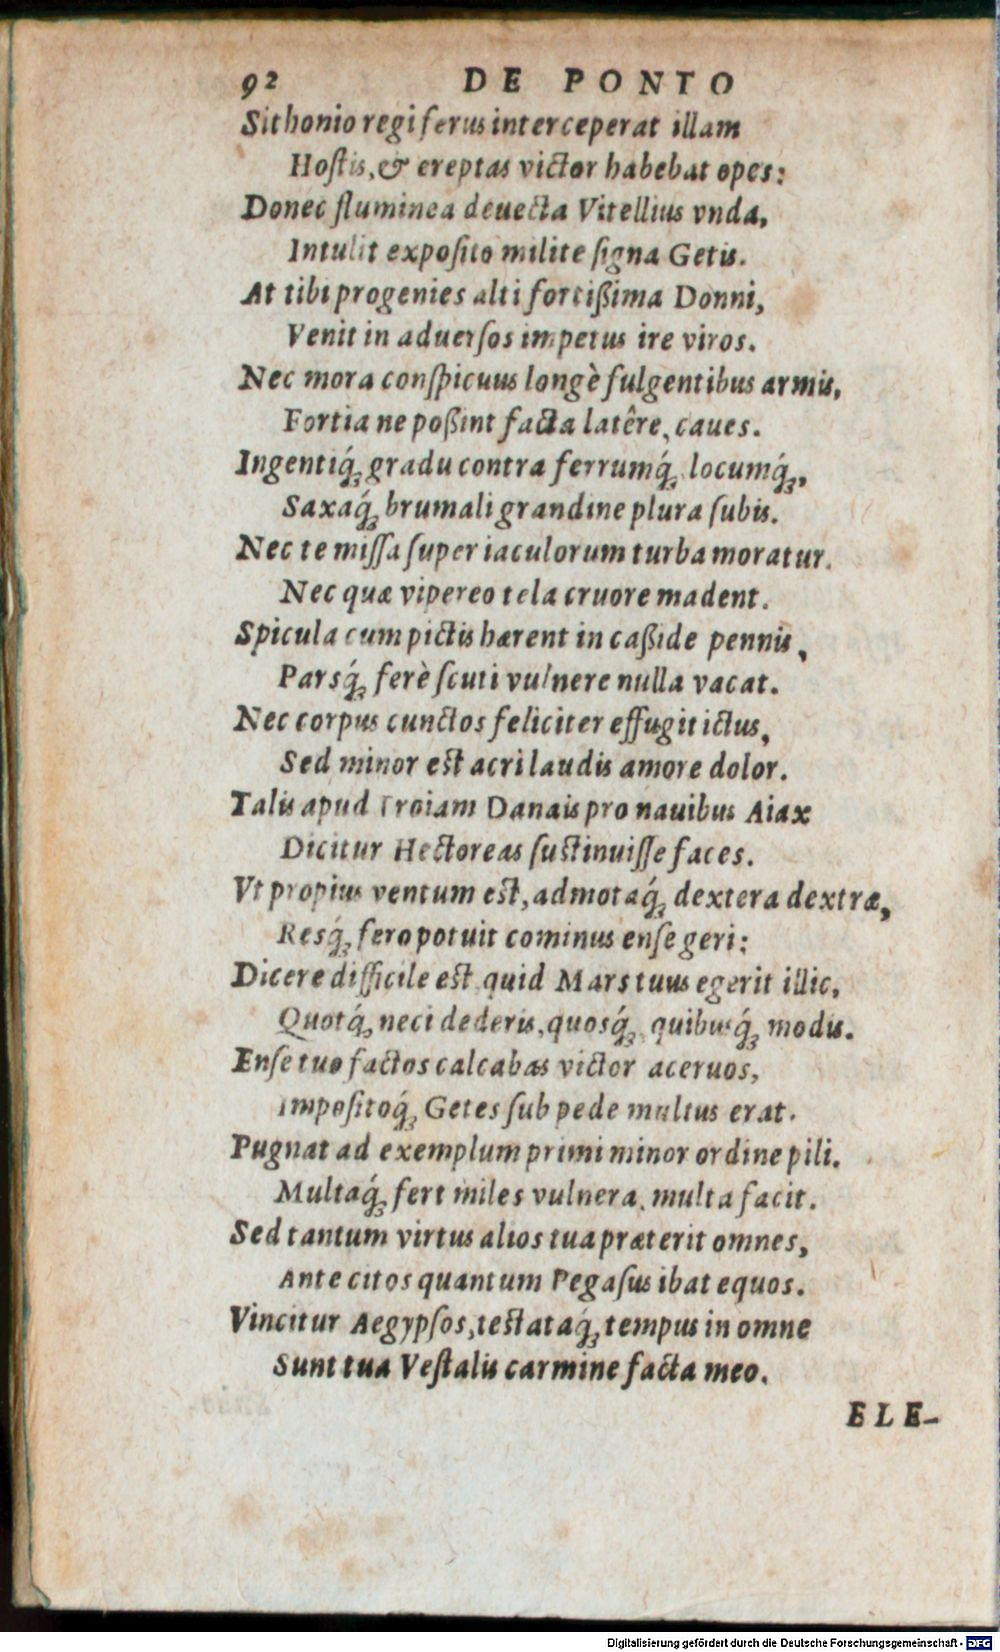 92 DE PONTO
Sithonio regi ferus interceperat illam
Hoſtis, & ereptas victor habebat opes:
Donec fluminea deuecta Vitellius vnda,
Intulit expoſito milite ſigna Getis.
At tibi progenies alti fortißima Donni,
Venit in aduerſos impetus ire viros.
Nec mora conſpicuus longè fulgentibus armis,
Fortia ne poßint facta latêre, caues.
Ingentiq́; gradu contra ferrumq́; locumq́;,
Saxaq́; brumali grandine plura ſubis.
Nec te miſſa ſuper iaculorum turba moratur.
Nec quæ vipereo tela cruore madent.
Spicula cum pictis hærent in caßide pennis,
Parsq́; ferè ſcuti vulnere nulla vacat.
Nec corpus cunctos feliciter effugit ictus,
Sed minor est acri laudis amore dolor.
Talis apud Troiam Danais pro nauibus Aiax
Dicitur Hectoreas ſustinuiſſe faces.
Vt propius ventum est, admotaq́; dextera dextræ,
Resq́; fero potuit cominus enſe geri:
Dicere difficile est quid Mars tuus egerit illic,
Quotq́; neci dederis, quosq́;, quibusq́; modis.
Enſe tuo factos calcabas victor aceruos,
Impoſitoq́; Getes ſub pede multus erat.
Pugnat ad exemplum primi minor ordine pili.
Multaq́; fert miles vulnera, multa facit.
Sed tantum virtus alios tua præterit omnes,
Ante citos quantum Pegaſus ibat equos.
Vincitur Aegypſos, testataq́; tempus in omne
Sunt tua Veſtalis carmine facta meo.
ELE-
Digitalisierung gefördert durch die Deutsche Forschungsgemeinschaft - DFG